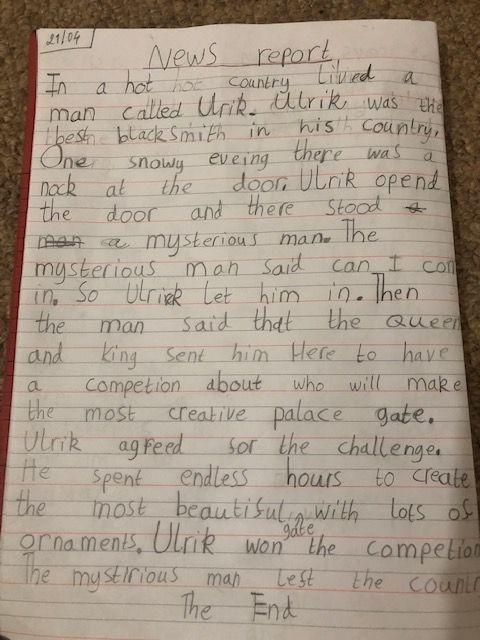 21/04
News report
In a hot hot country lived a
man called Ulrik. Ulrik was the
best blacksmith in his country.
One snowy eveing there was a
nock at the door. Ulrik opend
the door and there stood a
man a mysterious man. The
mysterious man said can I com
in. So Ulrik let him in. Then
the man said that the Queen
and king sent him Here to have
a competion about who will make
the most creative palace gate.
Ulrik agreed for the challenge.
He spent endless hours to create
the most beautiful gate with lots of
ornaments. Ulrik won the competion
The mystirious man left the countr
The End